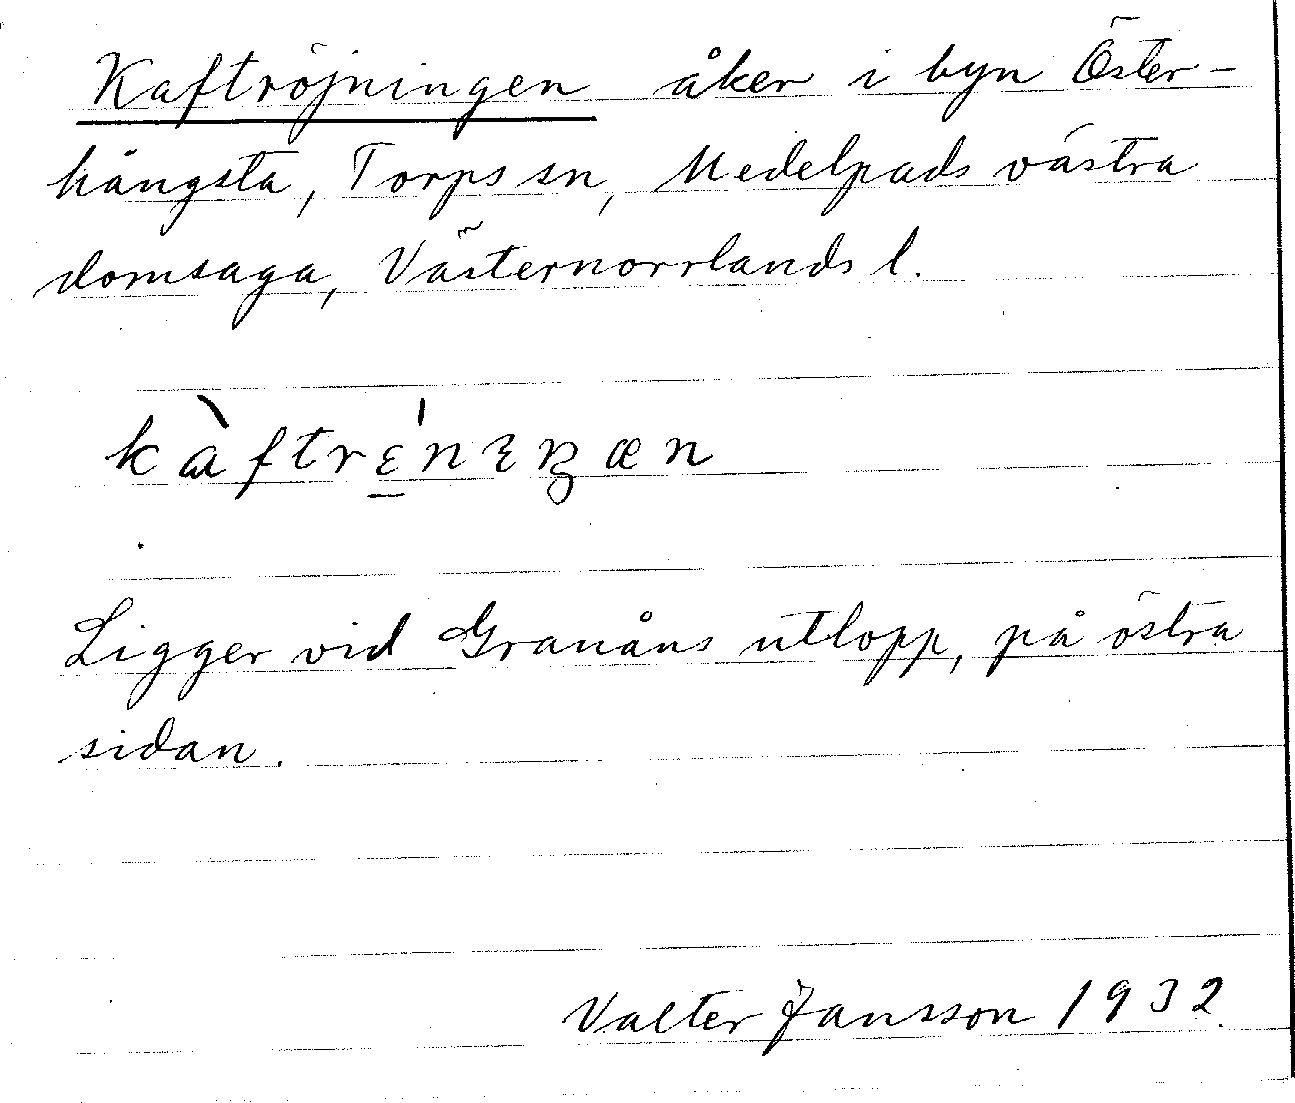 Kaftröjningen åker i byn Öster-
hångsta, Torps sn, Medelpads västra
domsaga, Västernorrlands l.
Ligger vid Granåns utlopp, på östra
sidan.
Valter Jansson 1932.